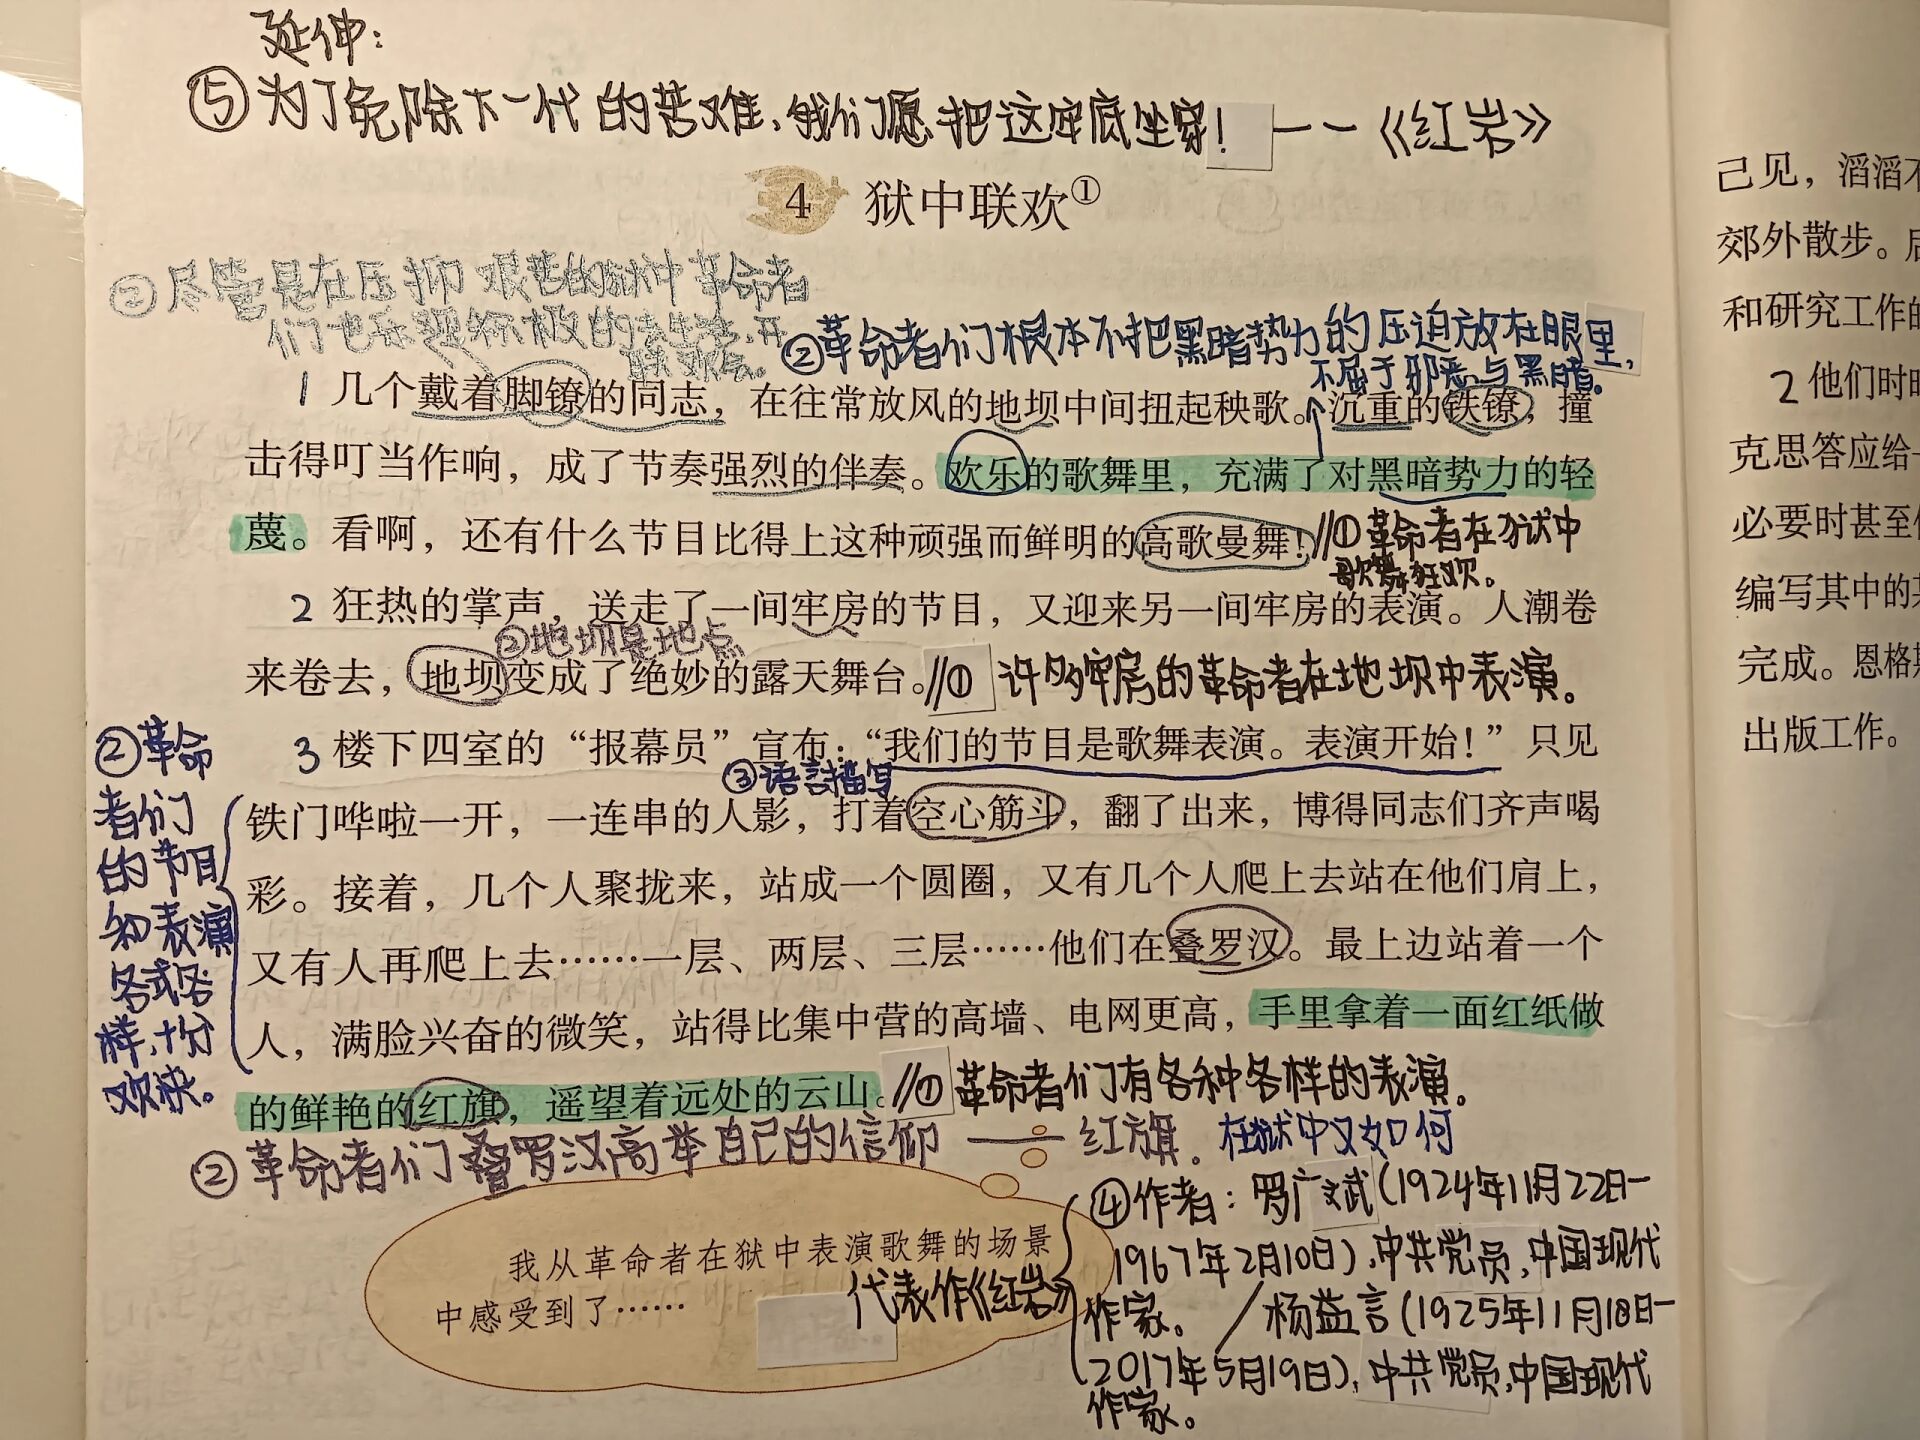 延伸：
⑤为了免除下一代的苦难，我们愿把这牢底坐穿！——《红岩》
4 狱中联欢①
②尽管是在压抑艰苦的狱中革命者
们也乐观积极的
②革命者们根本不把黑暗势力的压迫放在眼里，
不屈于邪恶与黑暗。
1 几个戴着脚镣的同志，在往常放风的地坝中间扭起秧歌。沉重的铁镣，撞
击得叮当作响，成了节奏强烈的伴奏。欢乐的歌舞里，充满了对黑暗势力的轻
蔑。看啊，还有什么节目比得上这种顽强而鲜明的高歌曼舞！//①革命者在狱中
歌舞狂欢。
2 狂热的掌声，送走了一间牢房的节目，又迎来另一间牢房的表演。人潮卷
②地坝是地点
来卷去，地坝变成了绝妙的露天舞台。//①许多牢房的革命者在地坝中表演。
3 楼下四室的“报幕员”宣布：“我们的节目是歌舞表演。表演开始！”只见
③语言描写
铁门哗啦一开，一连串的人影，打着空心筋斗，翻了出来，博得同志们齐声喝
彩。接着，几个人聚拢来，站成一个圆圈，又有几个人爬上去站在他们肩上，
又有人再爬上去……一层、两层、三层……他们在叠罗汉。最上边站着一个
人，满脸兴奋的微笑，站得比集中营的高墙、电网更高，手里拿着一面红纸做
的鲜艳的红旗，遥望着远处的云山。//①革命者们有各种各样的表演。
②革命
者们
的节目
和表演
各式各
样，十分
欢快。
②革命者们叠罗汉高举自己的信仰——红旗。在狱中又如何
我从革命者在狱中表演歌舞的场景
中感受到了……
代表作《红岩》
④作者：罗广斌（1924年11月22日—
1967年2月10日），中共党员，中国现代
作家。/杨益言（1925年11月18日—
2017年5月19日），中共党员，中国现代
作家。
己见，滔滔不
郊外散步。后
和研究工作的
2 他们时时
克思答应给
必要时甚至
编写其中的某
完成。恩格斯
出版工作。